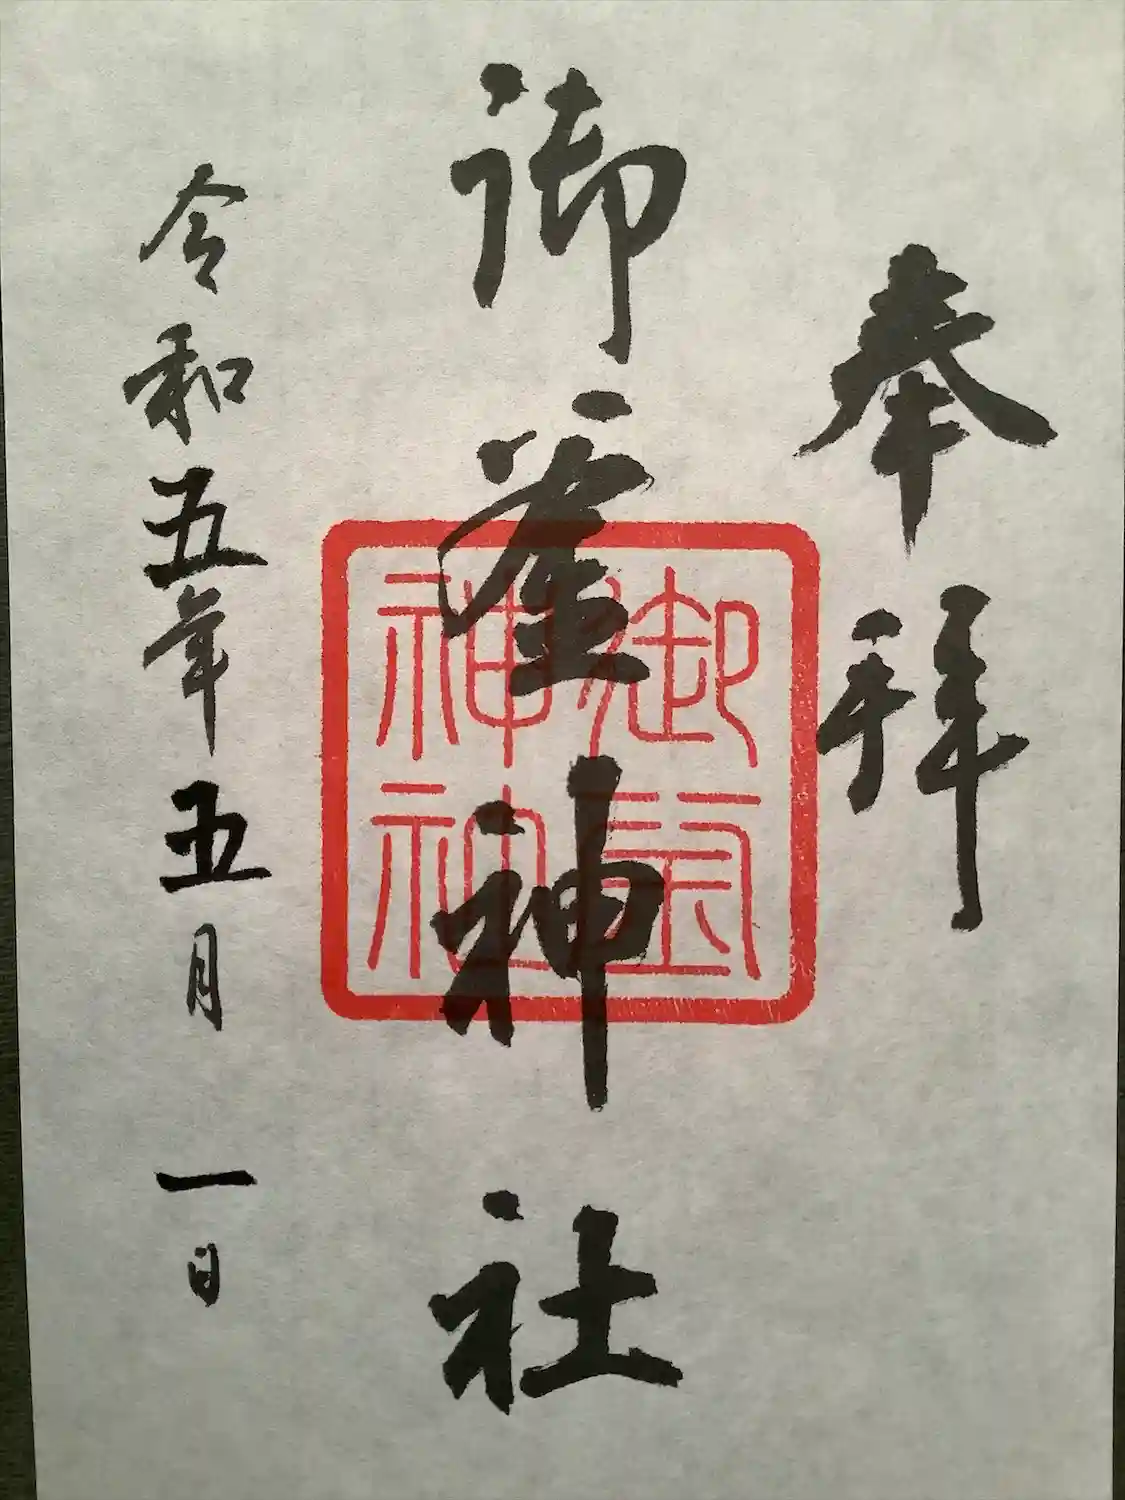 奉拝
御室神社
令和五年五月一日
御室
神社